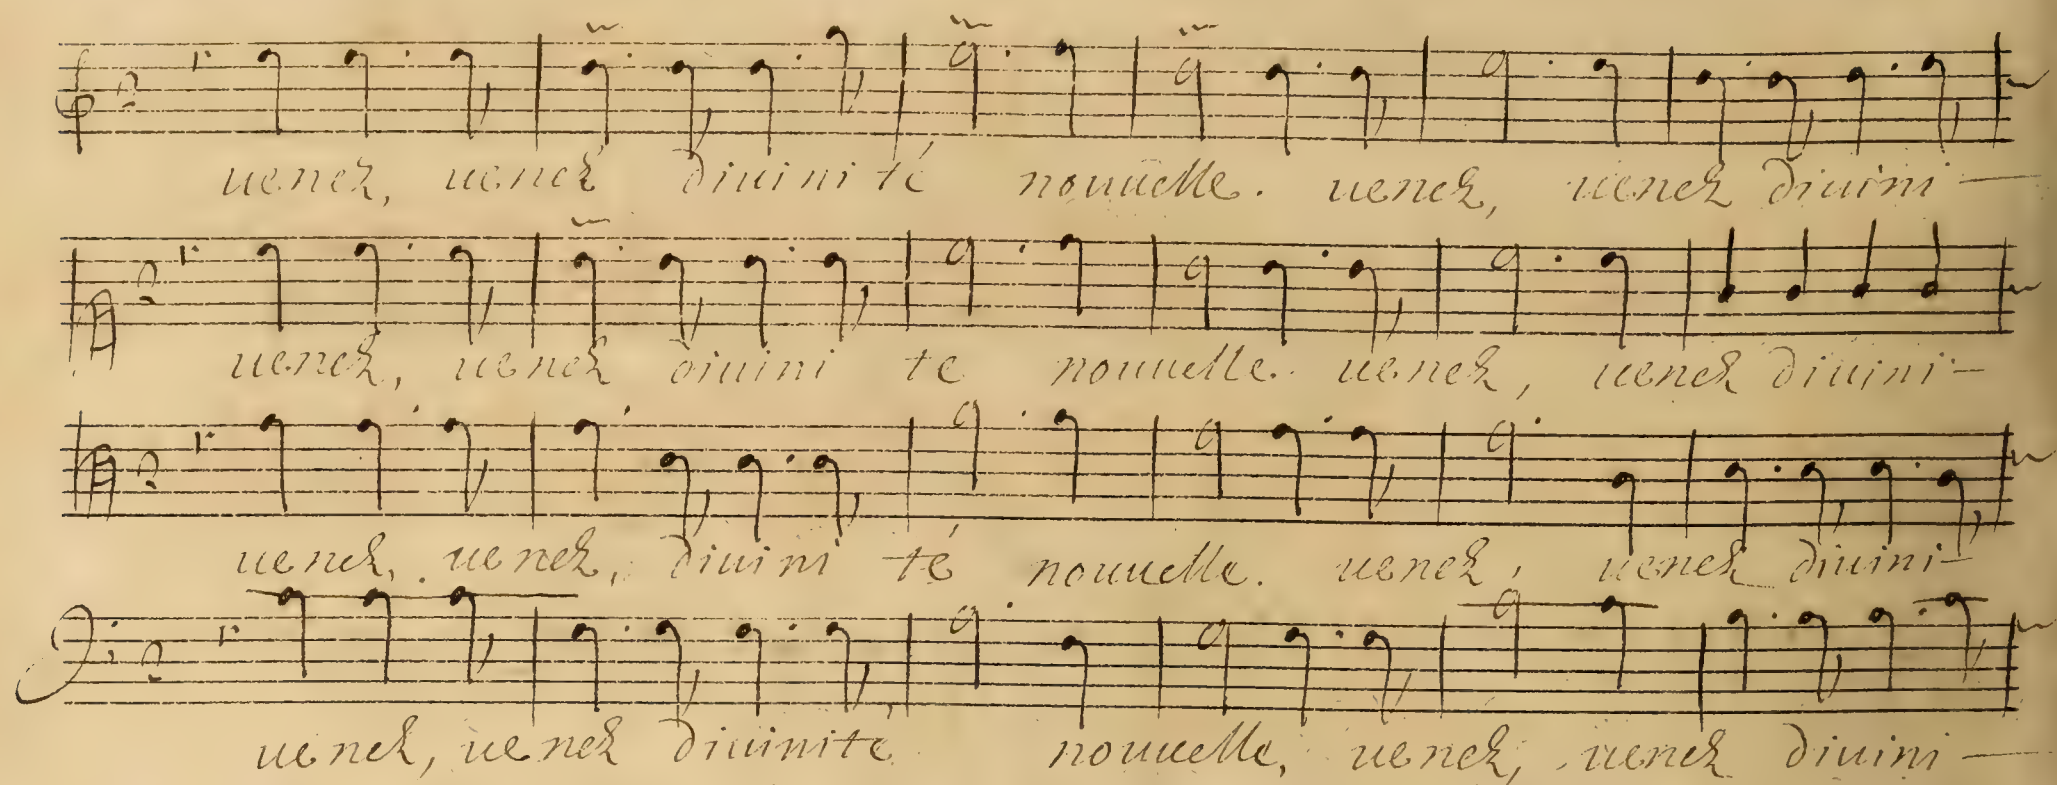 uenez, uenez diuini té nouuelle. uenez, uenez diuini-
uenez, uenez diuini te nouuelle. uenez, uenez diuini-
uenez, uenez, diuini té nouuelle. uenez, uenez diuini-
uenez, uenez diuinité nouuelle, uenez, uenez diuini-